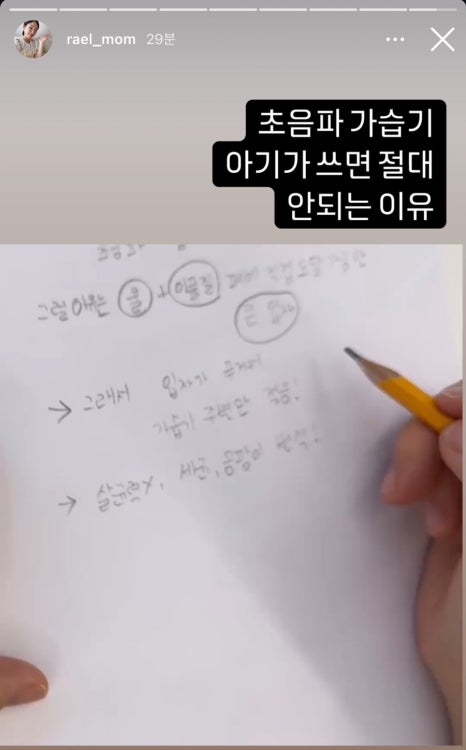 rael_mom 29분
초음파 가습기
아기가 쓰면 절대
안되는 이유
물 + 이물질
큰 입자
→ 그래서 입자가
가습기 주변만 젖음!
→ 살균력X, 세균, 곰팡이 번식!